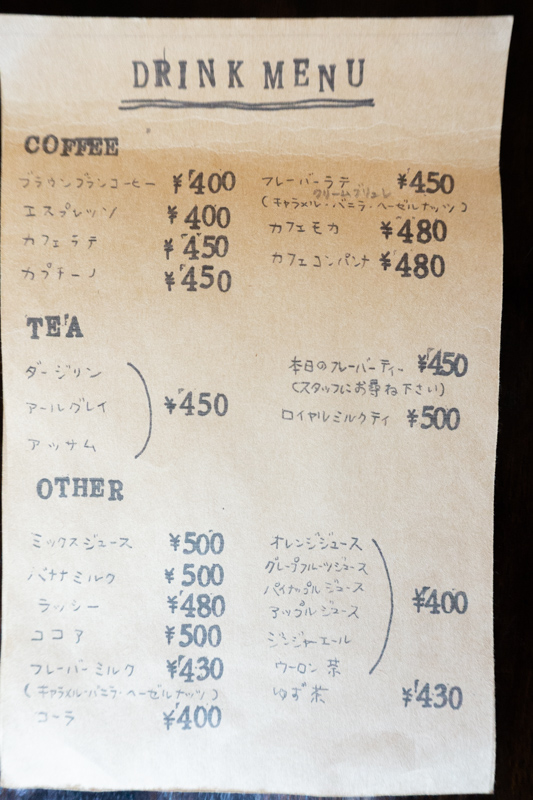 DRINK MENU
COFFEE
ブラウンブランコーヒー ¥400
エスプレッソ ¥400
カフェラテ ¥450
カプチーノ ¥450
フレーバーラテ ¥450
クリームブリュレ
(キャラメル・バニラ・ヘーゼルナッツ)
カフェモカ ¥480
カフェコンパンナ ¥480
TEA
ダージリン
アールグレイ ¥450
アッサム
本日のフレーバーティー ¥450
(スタッフにお尋ね下さい)
ロイヤルミルクティ ¥500
OTHER
ミックスジュース ¥500
バナナミルク ¥500
ラッシー ¥480
ココア ¥500
フレーバーミルク ¥430
(キャラメル・バニラ・ヘーゼルナッツ)
コーラ ¥400
オレンジジュース
グレープフルーツジュース
パイナップルジュース
アップルジュース ¥400
ジンジャーエール
ウーロン茶
ゆず茶 ¥430